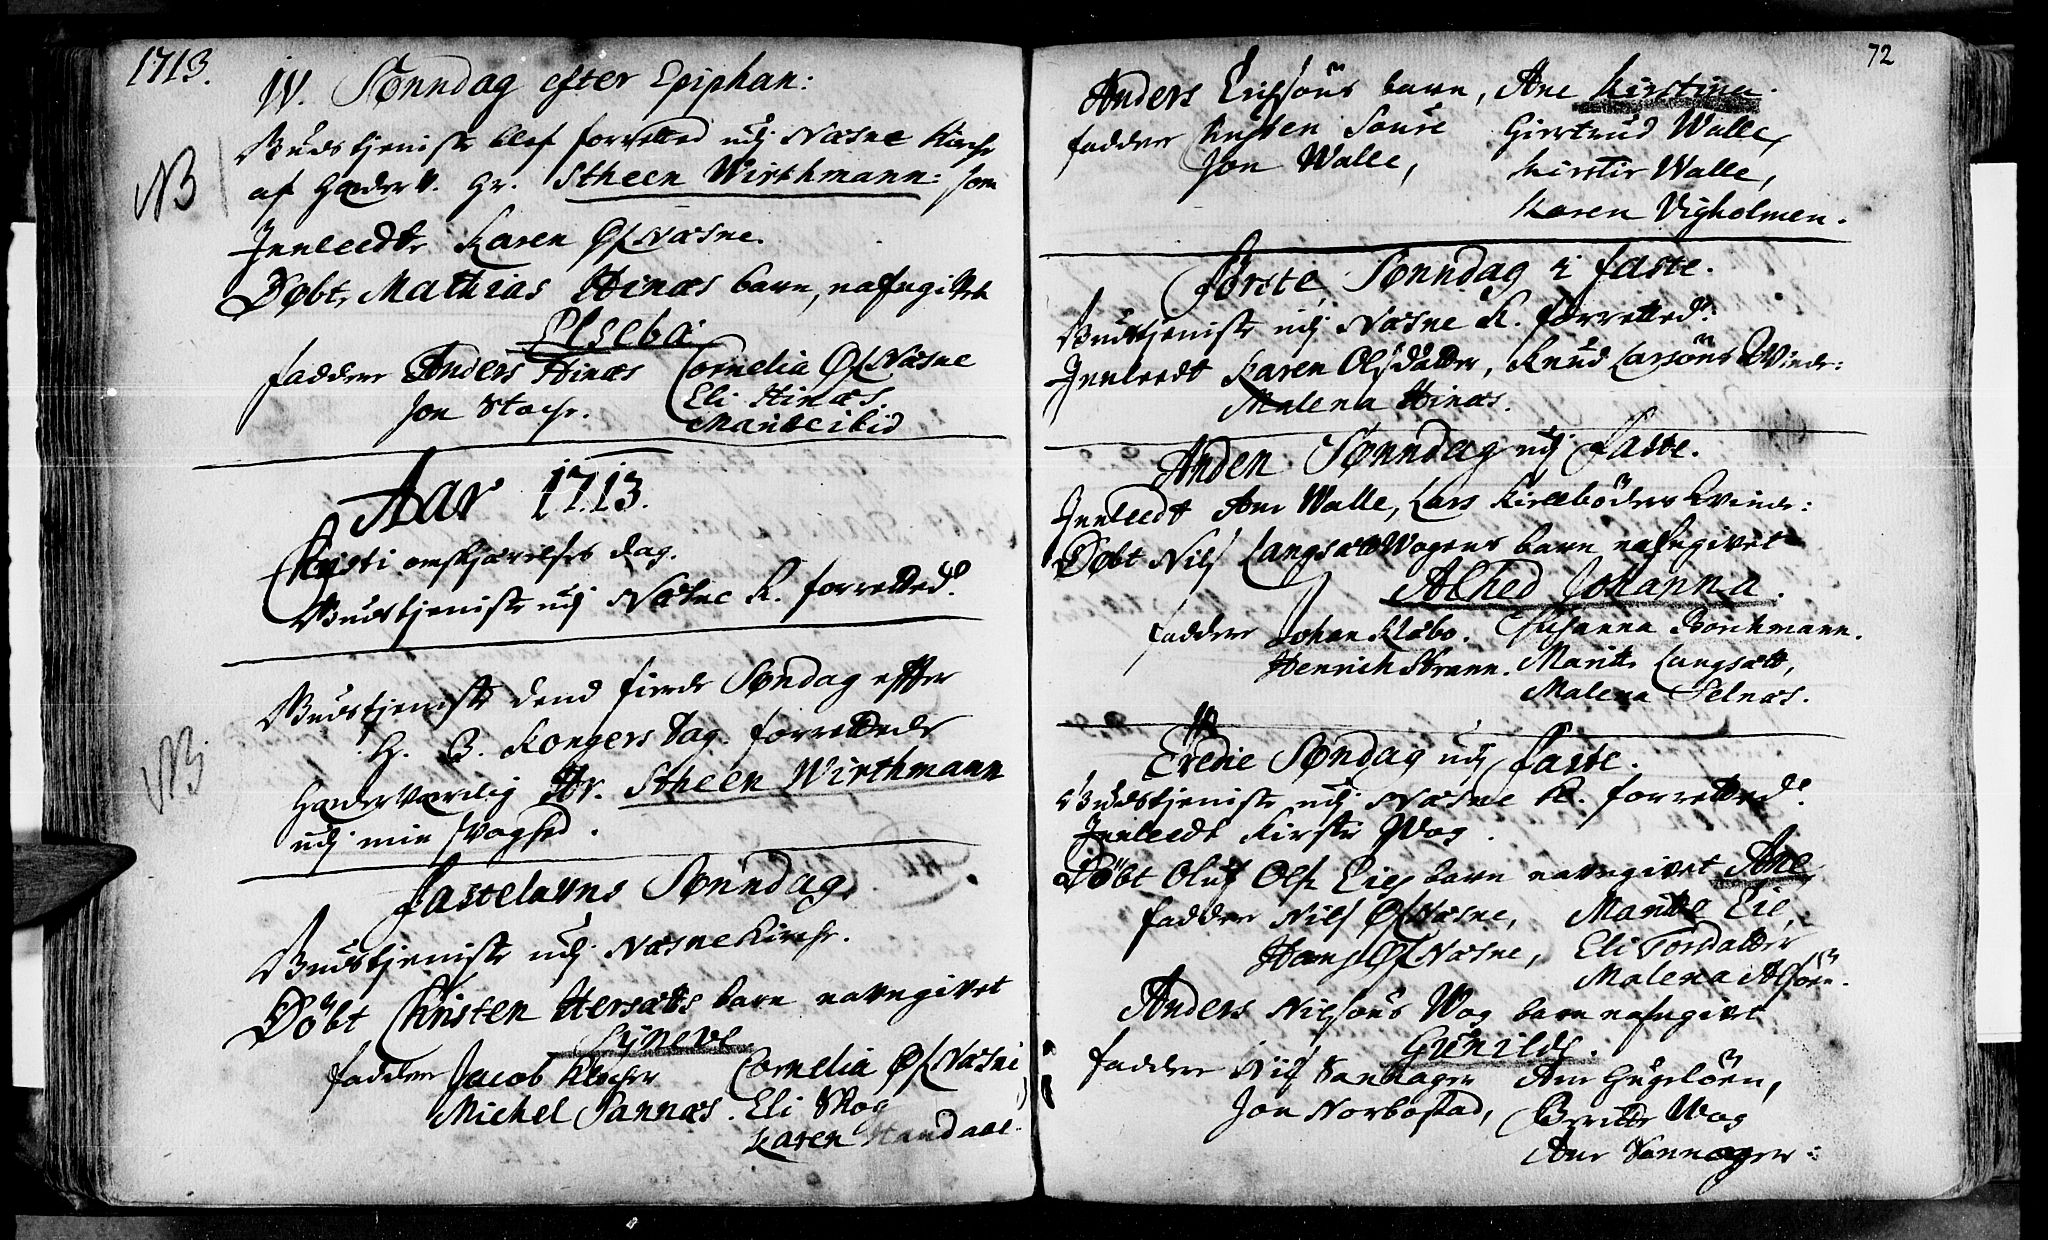 1713.
IV. Sønndag efter Epiphan:
NB
Gudstjeniste blef forretted udj Næsne Kirche
af Hæderv. Hr. Stheen Wirthmann: som
Innleedte Karen Øf Næsne.
Døbt, Mathias Hinæs barn, nafngifvet
Elseba
faddere Anders Hinæs Cornelia Øf Næsne
Jon Eli Hinæs.
Marite ibid
Aar 1713.
Christi omskjærelses dag.
Gudstjeniste udj Næsne K. forretted.
Gudstjeniste dend fierde Søndag effter
H. 3. Kongers Dag. forrettede
NB
Hæderværdig Hr. Stheen Wirthmann
udj min svaghed.
Fastelavns Sønndag,
Gudstjeniste udj Næsne Kirche.
Døbt Christen Hersætts barn navngivet
Syneve.
faddere Jacob Klocher Cornelia Øf Næsne
Michel Sannæs. Eli Skog
Karen Handaal.
72
Anders Erichsøns barn, Ane Kirstina.
faddere Giertrud Walle,
Jon Walle, Kirstie Walle,
Karen Vigholmen.
Første, Sønndag i faste.
Gudstjeniste udj Næsne K. forretted.
Innleedt Karen Olsdatter, Knud Larsøns Qvinde:
Malena Hinæs.
Anden Sønndag udj Faste.
Innleedt Ane Walle, Lars Kirkebøders Qvinde:
Døbt Nils Langsæt Wogens barn nafngivet
Alhed Johanna.
faddere Johan Klæbo. Susanna Borchmann.
Henrich Marite Langsætt,
Malena Selnæs.
Tredie Søndag udj Faste.
Gudstjeniste udj Næsne K. forretted.
Innleedt Kirstie Wog.
Døbt Oluf Ols. Eies barn navngivet Ane
faddere Nils Øf Næsne, Marite Eie,
Hans Øf Næsne, Eli Tordatter
Malena Alsøen.
Anders Nilsøns Wog barn nafngivet
Gunilde.
faddere Nils Sandager Ane Hugeløen,
Jon Norbostad, Beritte Wog
Ane Sannager: